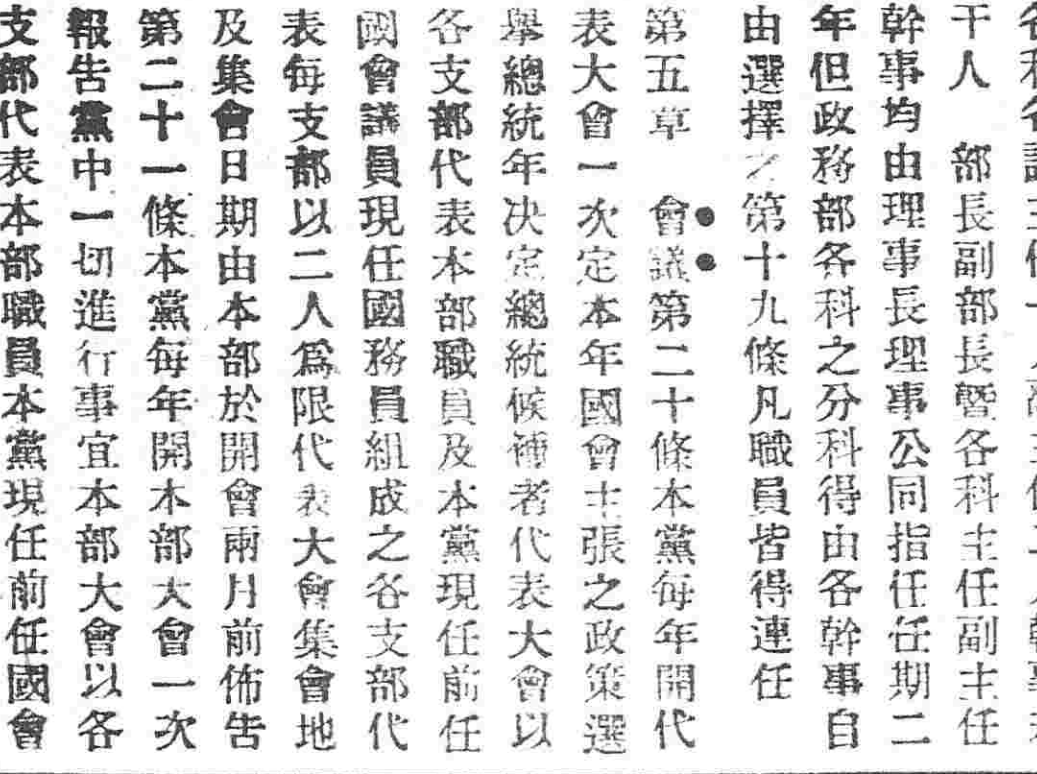 干人　部長副部長暨各科主任副主任
幹事均由理事長理事公同指任任期二
年但政務部各科之分科得由各幹事自
由選擇之第十九條凡職員皆得連任
第五章　會議第二十條本黨每年開代
表大會一次定本年國會主張之政策選
舉總統年决定總統候補者代表大會以
各支部代表本部職員及本黨現任前任
國會議員現任國務員組成之各支部代
表每支部以二人爲限代表大會集會地
及集會日期由本部於開會兩月前佈告
第二十一條本黨每年開本部大會一次
報告黨中一切進行事宜本部大會以各
支部代表本部職員本黨現任前任國會